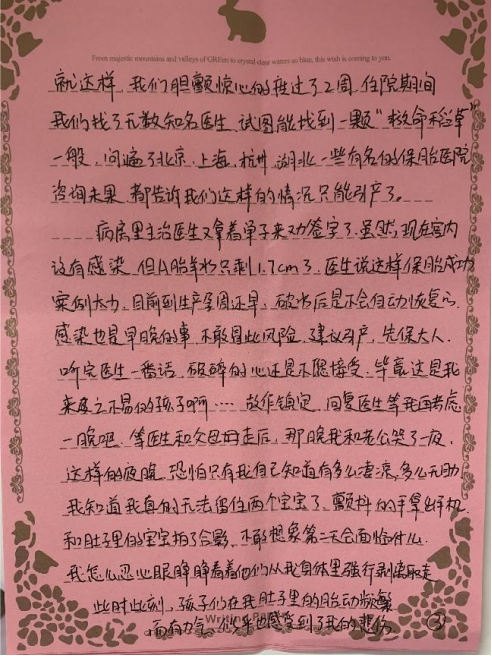 From majestic mountains and valleys of GREen to crystal clear waters so blue, this wish is coming to you.
就这样，我们胆颤惊心的维过了2周，住院期间
我们找了无数知名医生，试图能找到一颗“救命稻草”
一般，问遍了北京、上海、杭州、湖北一些有名的保胎医院
咨询结果，都告诉我们这样的情况只能引产了。
病房里主治医生又拿着单子来劝签字了，虽然，现在宫内
没有感染，但A胎羊水只剩1.7cm了，医生说这样保胎成功
案例太少，目前到生产孕周还早，破水后是不会自动恢复的
感染也是早晚的事，不敢冒此风险，建议引产，先保大人.
听完医生一番话，破碎的心还是不愿接受，毕竟这是我
来之不易的孩子啊……故作镇定，回复医生等我再考虑
一晚吧，等医生和父母走后，那晚我和老公哭了一夜.
这样的夜晚，恐怕只有我自己知道有多么凄凉，多么无助
我知道我真的无法留住两个宝宝了，颤抖的手拿出手机
和肚子里的宝宝拍了合影，不敢想象第二天会面临什么.
我怎么忍心眼睁睁看着他们从我身体里强行剥离取走
此时此刻，孩子们在我肚子里的胎动频繁
而有力气，似乎也感受到了我的悲伤
③